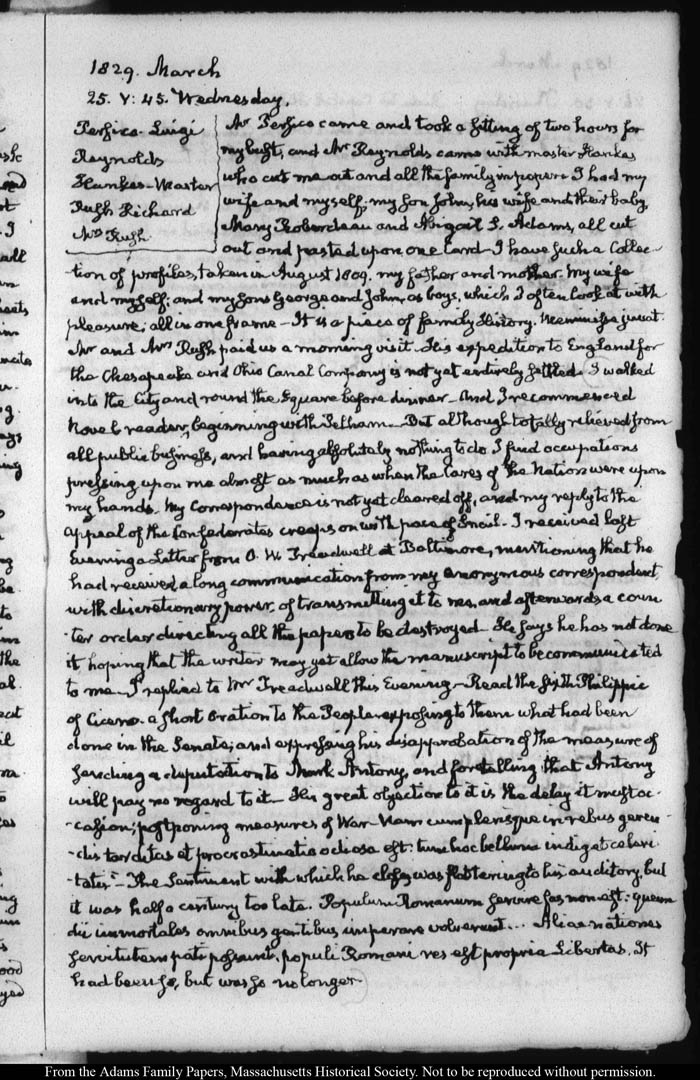 1829. March
25. V: 45. Wednesday.
Persico. Luigi
Reynolds
Hankes-Master
Rush Richard
Mrs Rush
Mr Persico came and took a sitting of two hours for
my bust, and Mr Reynolds came with master Hankes
who cut me out and all the family in paper. I had my
wife and myself, my Son John, his wife and their baby,
Mary Roberdeau and Abigail S. Adams, all cut
out and pasted upon one Card. I have such a Collec-
tion of profiles, taken in August 1809. my father and mother. My wife
and myself; and my Sons George and John, as boys, which I often look at with
pleasure; all in one frame – It is a piece of family History. Meminisse juvat.
Mr and Mrs Rush paid us a morning visit. His expedition to England for
the Chesapeake and Ohio Canal Company is not yet entirely settled. I walked
into the City and round the Square before dinner – And I recommenced
Novel reader, beginning with Pelham – But although totally relieved from
all public business, and having absolutely nothing to do I find occupations
pressing upon me almost as much as when the Cares of the Nation were upon
my hands. My Correspondence is not yet cleared off, and my reply to the
Appeal of the Confederates creeps on with pace of Snail – I received last
Evening a Letter from O. W. Treadwell at Baltimore, mentioning that he
had received a long communication from my anonymous correspondent,
with discretionary power, of transmitting it to me, and afterwards a coun
-ter order directing all the papers to be destroyed – He says he has not done
it hoping that the writer may yet allow the manuscript to be communicated
to me. I replied to Mr Treadwell this Evening – Read the sixth Philippic
of Cicero. a short Oration to the People exposing to them what had been
done in the Senate; and expressing his disapprobation of the measure of
sending a deputation to Mark Antony, and foretelling that Antony
will pay no regard to it – His great objection to it is the delay it must oc-
-casion; postponing measures of War. Nam cum plerisque in rebus geren
-dis tarditas et procrastinatio odiosa est: tum hoc bellum indiget celeri
-tatis" – The Sentiment with which he closes was flattering to his auditory, but
it was half a century too late. Populum Romanum servire fas non est: quem
dii immortales omnibus gentibus imperare voluerunt... Aliae nationes
servitutem pati possunt. populi Romani res est propria Libertas. It
had been so, but was so no longer
From the Adams Family Papers, Massachusetts Historical Society. Not to be reproduced without permission.